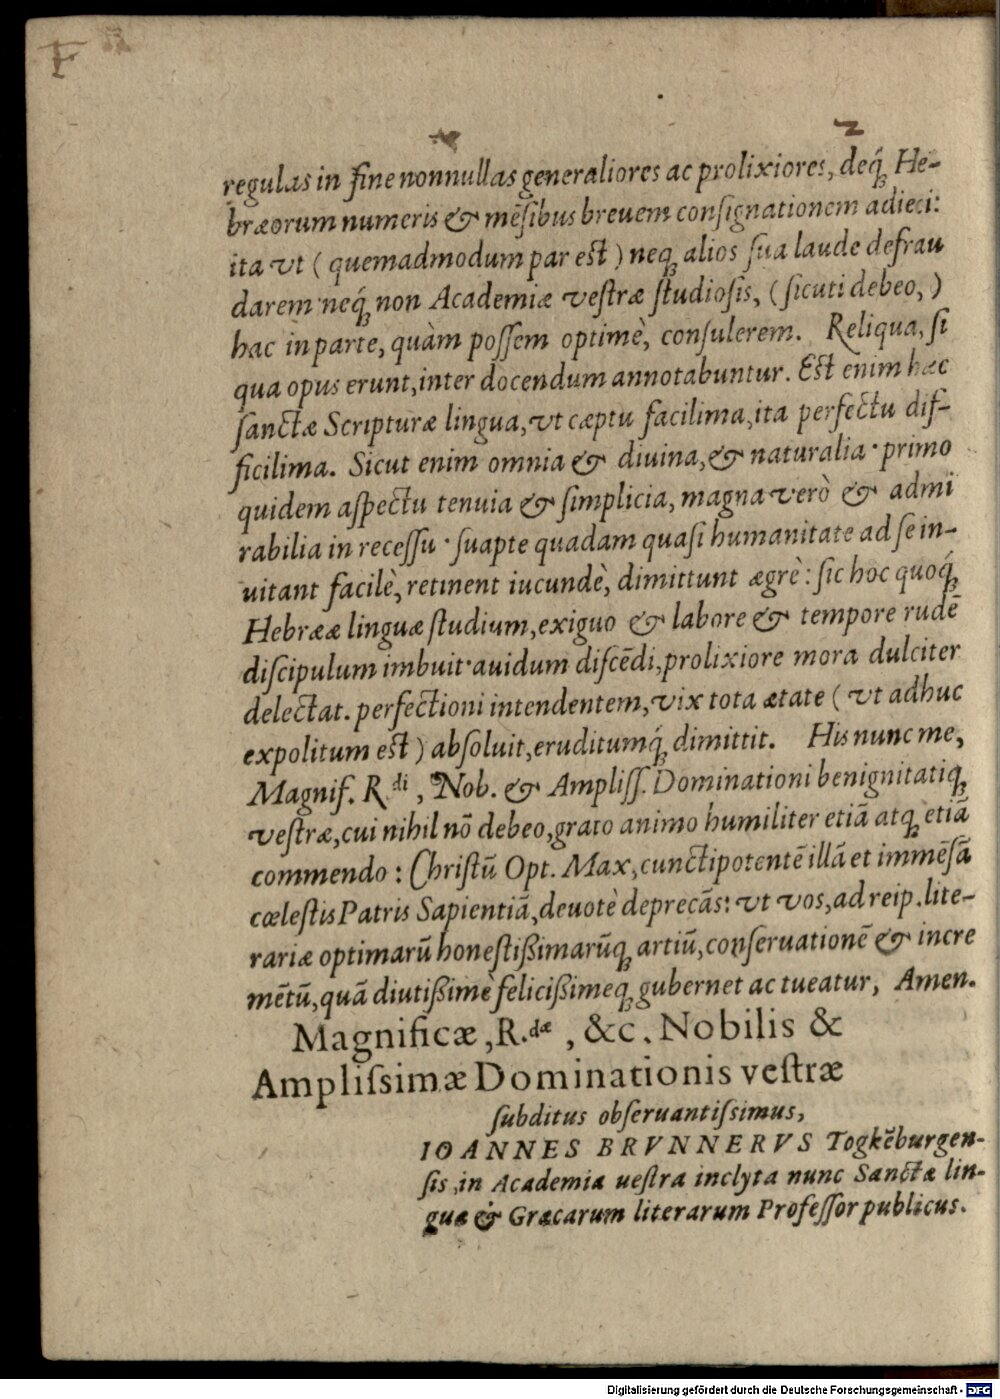 F
regulas in fine nonnullas generaliores ac prolixiores, deq́; He-
bræorum numeris & mēſibus breuem conſignationem adieci:
ita vt ( quemadmodum par eſt ) neq; alios ſua laude defrau
darem neq́; non Academiæ veſtræ ſtudioſis, ( ſicuti debeo, )
hac in parte, quàm poſſem optimè, conſulerem. Reliqua, ſi
qua opus erunt, inter docendum annotabuntur. Eſt enim hæc
ſanctæ Scripturæ lingua, vt cæptu facilima, ita perfectu dif-
ficilima. Sicut enim omnia & diuina, & naturalia · primo
quidem aſpectu tenuia & ſimplicia, magna verò & admi
rabilia in receſſu · ſuapte quadam quaſi humanitate ad ſe in-
uitant facilè, retinent iucundè, dimittunt ægrè : ſic hoc quoq́;
Hebrææ linguæ ſtudium, exiguo & labore & tempore rudē
diſcipulum imbuit · auidum diſcēdi, prolixiore mora dulciter
delectat. perfectioni intendentem, vix tota ætate ( vt adhuc
expolitum eſt ) abſoluit, eruditumq́; dimittit. His nunc me,
Magnif. R.di , Nob. & Ampliſſ. Dominationi benignitatiq;
veſtræ, cui nihil nō debeo, grato animo humiliter etiā atq; etiā
commendo : Chriſtū Opt. Max, cunctipotentē illā et immēſā
cœleſtis Patris Sapientiā, deuotè deprecās: vt vos, ad reip. lite-
rariæ optimarū honeſtißimarūq; artiū, conſeruationē & incre
mētū, quā diutißimè felicißimeq; gubernet ac tueatur, Amen.
Magnificæ, R.dæ , &c. Nobilis &
Ampliſsimæ Dominationis veſtræ
ſubditus obſeruantiſsimus,
IOANNES BRVNNERVS Togkēburgen-
ſis, in Academia ueſtra inclyta nunc Sanctæ lin-
guæ & Græcarum literarum Profeſſor publicus.
Digitalisierung gefördert durch die Deutsche Forschungsgemeinschaft - DFG